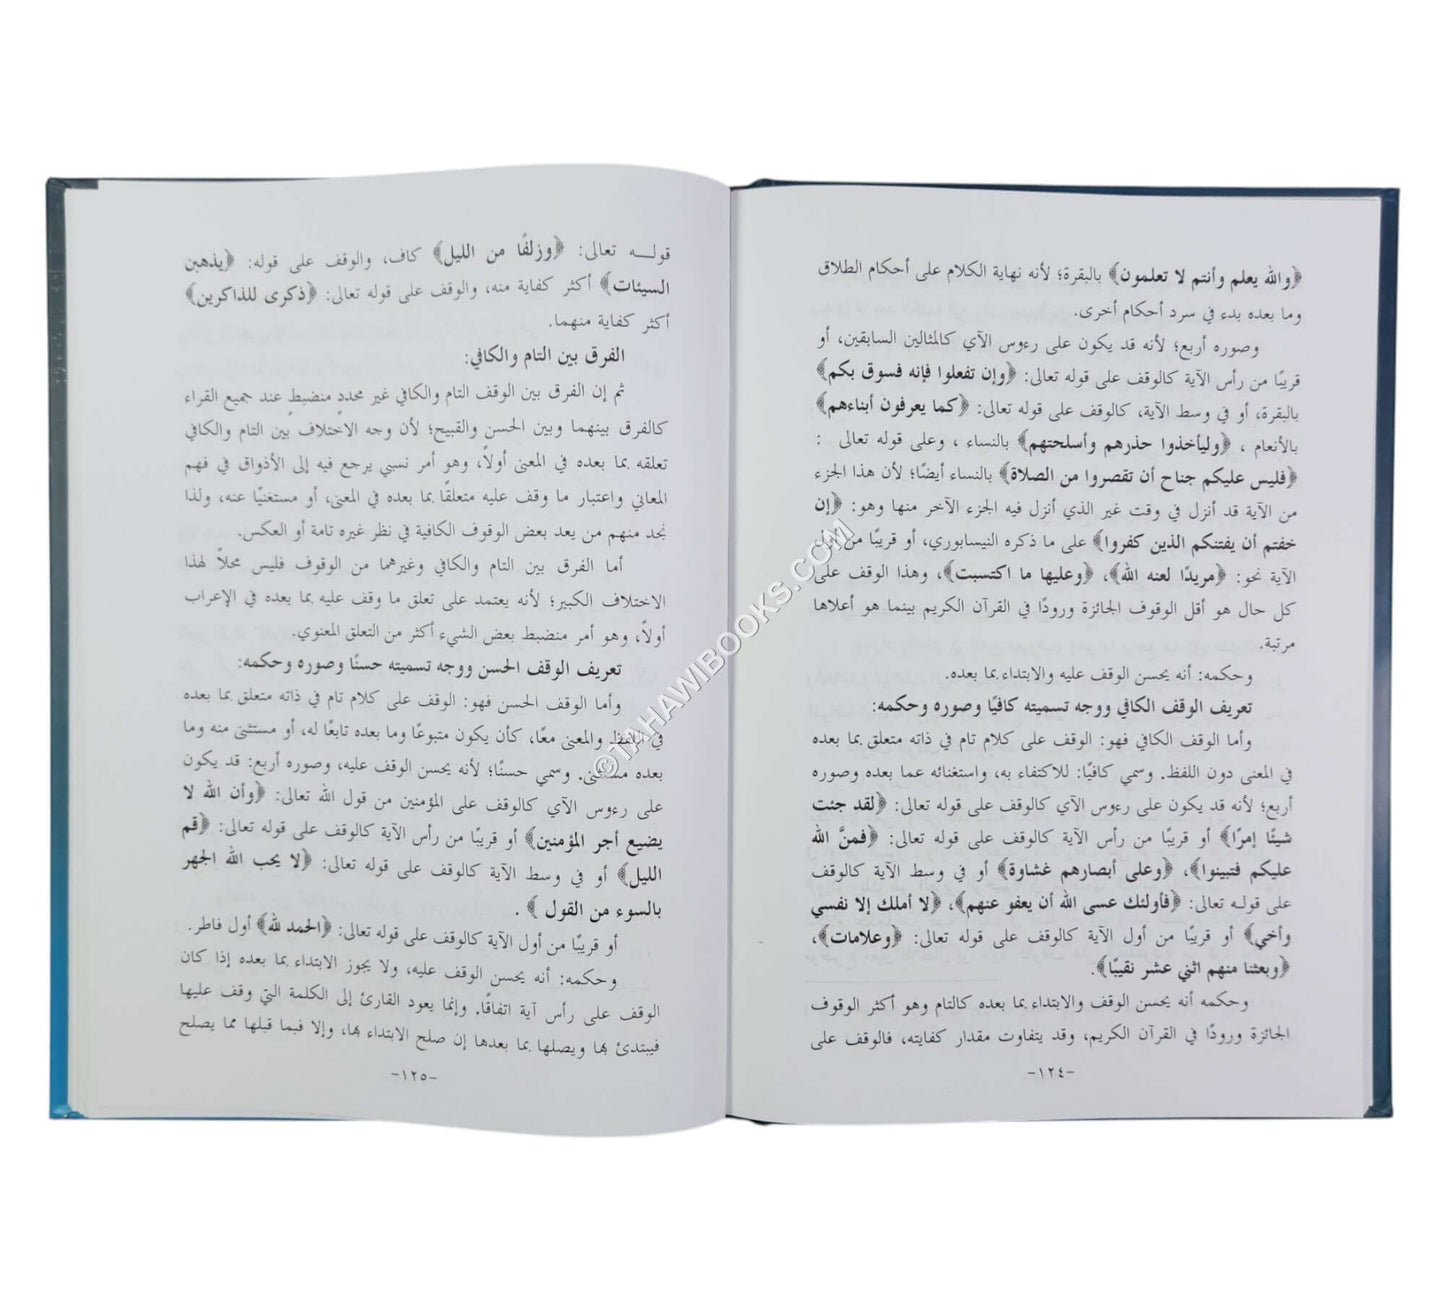 ﴿والله يعلم وأنتم لا تعلمون﴾ بالبقرة؛ لأنه نهاية الكلام على أحكام الطلاق
وما بعده بدء في سرد أحكام أخرى.
وصوره أربع؛ لأنه قد يكون على رءوس الآي كالمثالين السابقين، أو
قريبًا من رأس الآية كالوقف على قوله تعالى: ﴿وإن تفعلوا فإنه فسوق بكم﴾
بالبقرة، أو في وسط الآية، كالوقف على قوله تعالى: ﴿كما يعرفون أبناءهم﴾
بالأنعام ، ﴿وليأخذوا حذرهم وأسلحتهم﴾ بالنساء ، وعلى قوله تعالى :
﴿فليس عليكم جناح أن تقصروا من الصلاة﴾ بالنساء أيضًا؛ لأن هذا الجزء
من الآية قد أنزل في وقت غير الذي أنزل فيه الجزء الآخر منها وهو: ﴿إن
خفتم أن يفتنكم الذين كفروا﴾ على ما ذكره النيسابوري، أو قريبًا من أول
الآية نحو: ﴿مريدًا لعنه الله﴾، ﴿وعليها ما اكتسبت﴾، وهذا الوقف على
كل حال هو أقل الوقوف الجائزة ورودًا في القرآن الكريم بينما هو أعلاها
مرتبة.
وحكمه: أنه يحسن الوقف عليه والابتداء بما بعده.
تعريف الوقف الكافي ووجه تسميته كافيًا وصوره وحكمه:
وأما الوقف الكافي فهو: الوقف على كلام تام في ذاته متعلق بما بعده
في المعنى دون اللفظ. وسمي كافيًا: للاكتفاء به، واستغنائه عما بعده وصوره
أربع؛ لأنه قد يكون على رءوس الآي كالوقف على قوله تعالى: ﴿لقد جئت
شيئًا إمرًا﴾ أو قريبًا من رأس الآية كالوقف على قوله تعالى: ﴿فمنَّ الله
عليكم فتبينوا﴾، ﴿وعلى أبصارهم غشاوة﴾ أو في وسط الآية كالوقف
على قوله تعالى: ﴿فأولئك عسى الله أن يعفو عنهم﴾، ﴿لا أملك إلا نفسي
وأخي﴾ أو قريبًا من أول الآية كالوقف على قوله تعالى: ﴿وعلامات﴾،
﴿وبعثنا منهم اثني عشر نقيبًا﴾.
وحكمه أنه يحسن الوقف والابتداء بما بعده كالتام وهو أكثر الوقوف
الجائزة ورودًا في القرآن الكريم، وقد يتفاوت مقدار كفايته، فالوقف على
-١٢٤-
قولـه تعالى: ﴿وزلفًا من الليل﴾ كاف، والوقف على قوله: ﴿يذهبن
السيئات﴾ أكثر كفاية منه، والوقف على قوله تعالى: ﴿ذكرى للذاكرين﴾
أكثر كفاية منهما.
الفرق بين التام والكافي:
ثم إن الفرق بين الوقف التام والكافي غير محددٍ منضبطٍ عند جميع القراء
كالفرق بينهما وبين الحسن والقبيح؛ لأن وجه الاختلاف بين التام والكافي
تعلقه بما بعده في المعنى أولاً، وهو أمر نسبي يرجع فيه إلى الأذواق في فهم
المعاني واعتبار ما وقف عليه متعلقًا بما بعده في المعنى، أو مستغنيًا عنه، ولذا
نجد منهم من يعد بعض الوقوف الكافية في نظر غيره تامة أو العكس.
أما الفرق بين التام والكافي وغيرهما من الوقوف فليس محلاً لهذا
الاختلاف الكبير؛ لأنه يعتمد على تعلق ما وقف عليه بما بعده في الإعراب
أولاً، وهو أمر منضبط بعض الشيء أكثر من التعلق المعنوي.
تعريف الوقف الحسن ووجه تسميته حسنًا وصوره وحكمه:
وأما الوقف الحسن فهو: الوقف على كلام تام في ذاته متعلق بما بعده
في اللفظ والمعنى معًا، كأن يكون متبوعًا وما بعده تابعًا له، أو مستثنى منه وما
بعده مستثنى. وسمي حسنًا؛ لأنه يحسن الوقف عليه، وصوره أربع: قد يكون
على رءوس الآي كالوقف على المؤمنين من قول الله تعالى: ﴿وأن الله لا
يضيع أجر المؤمنين﴾ أو قريبًا من رأس الآية كالوقف على قوله تعالى: ﴿قم
الليل﴾ أو في وسط الآية كالوقف على قوله تعالى: ﴿لا يحب الله الجهر
بالسوء من القول ﴾ .
أو قريبًا من أول الآية كالوقف على قوله تعالى: ﴿الحمد لله﴾ أول فاطر.
وحكمه: أنه يحسن الوقف عليه، ولا يجوز الابتداء بما بعده إذا كان
الوقف على رأس آية اتفاقًا. وإنما يعود القارئ إلى الكلمة التي وقف عليها
فيبتدئ بها ويصلها بما بعدها إن صلح الابتداء بها، وإلا فبما قبلها مما يصلح
-١٢٥-
©TAHAWIBOOKS.COM